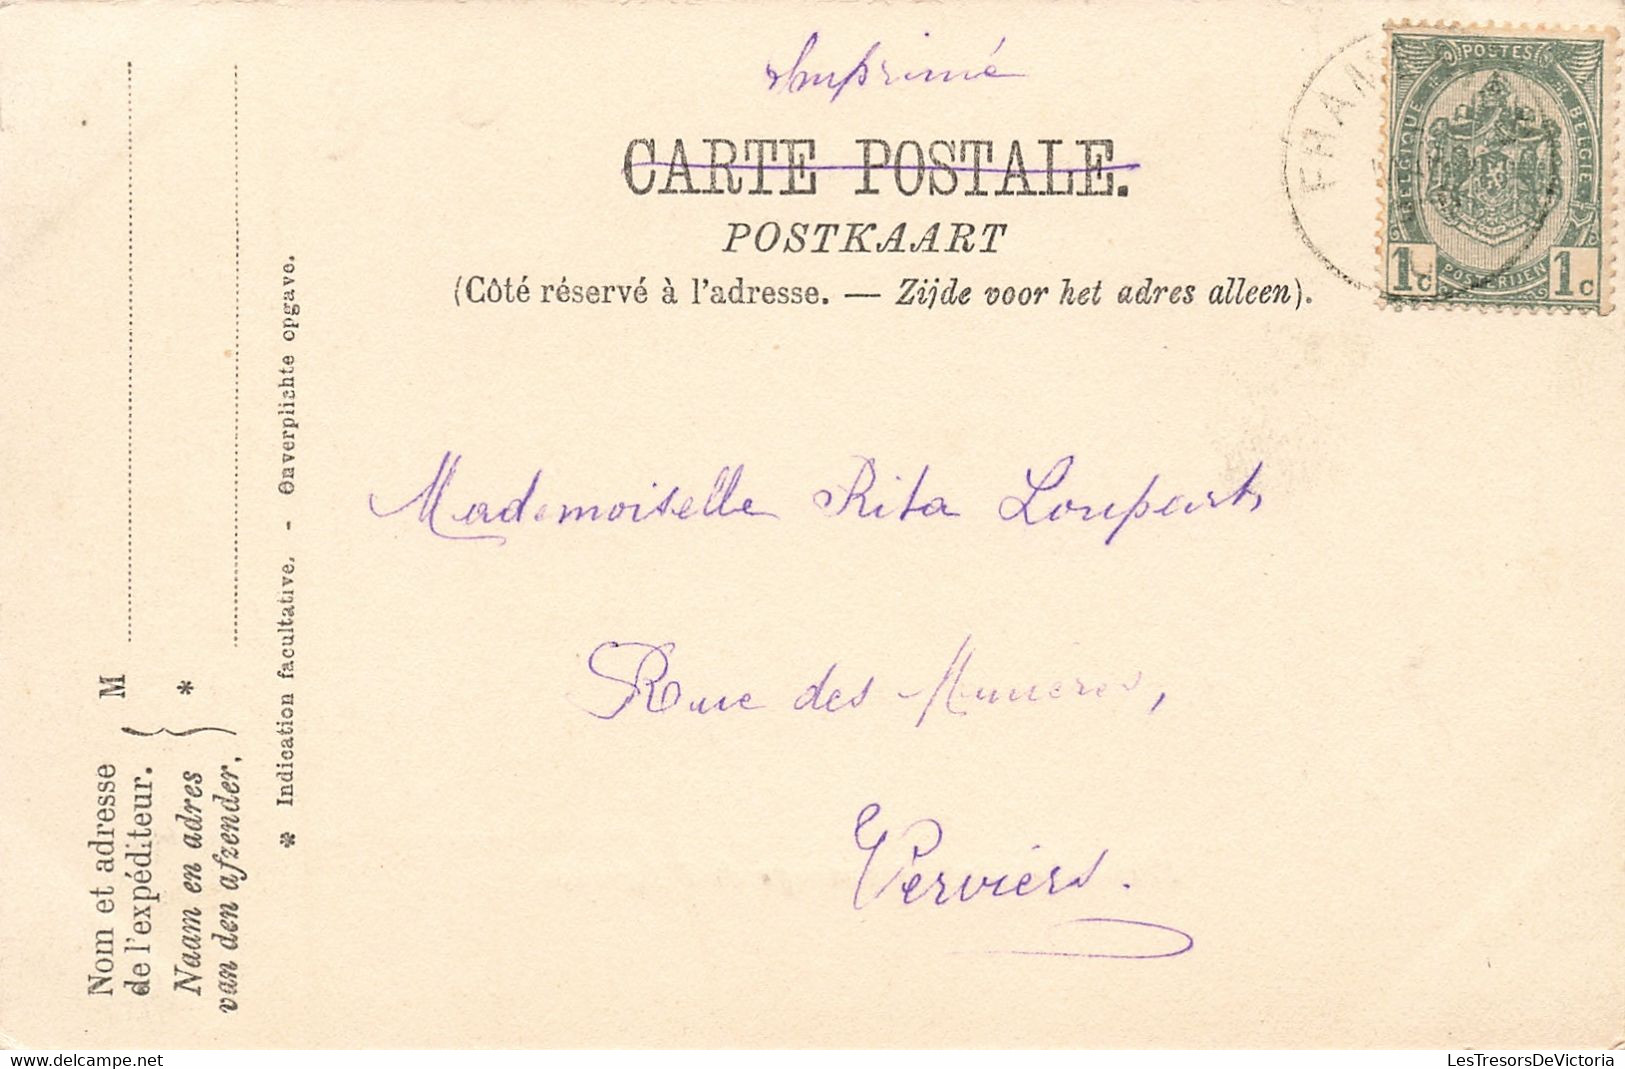 Imprimé
CARTE POSTALE.
POSTKAART
(Côté réservé à l'adresse. — Zijde voor het adres alleen).
POSTES
BELGIQUE
BELGIE
POSTERIJEN
1c 1c
Mademoiselle Rita Loupart
Rue des
Verviers.
Nom et adresse
de l'expéditeur.
M
Naam en adres
van den afzender,
*
* Indication facultative. - Onverplichte opgave.
delcampe.net
LesTresorsDeVictoria